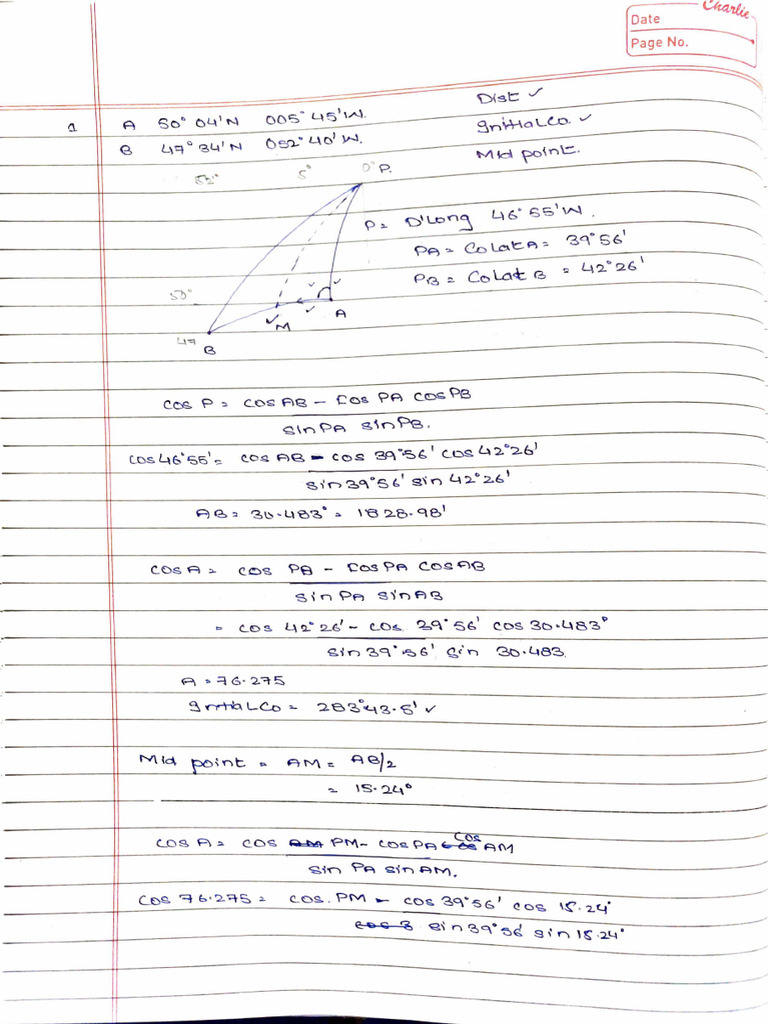 Charlie
Date
Page No.
1 A 50° 04'N 005° 45'W. Dist ✓
B 47° 34'N 052° 40'W. Initial Co. ✓
Mid point.
52° 5° 0° P.
P = D'Long 46° 55'W.
PA = Colat A = 39° 56'
PB = Colat B = 42° 26'
50°
A
M
47 B
cos P = cos AB - cos PA cos PB
sin PA sin PB.
cos 46° 55' = cos AB - cos 39° 56' cos 42° 26'
sin 39° 56' sin 42° 26'
AB = 30.483° = 1828.98'
cos A = cos PB - cos PA cos AB
sin PA sin AB
= cos 42° 26' - cos 39° 56' cos 30.483°
sin 39° 56' sin 30.483
A = 76.275
Initial Co = 283° 43.5' ✓
Mid point = AM = AB/2
= 15.24°
cos A = cos PM - cos PA cos AM
sin PA sin AM.
cos 76.275 = cos. PM - cos 39° 56' cos 15.24°
sin 39° 56' sin 15.24°